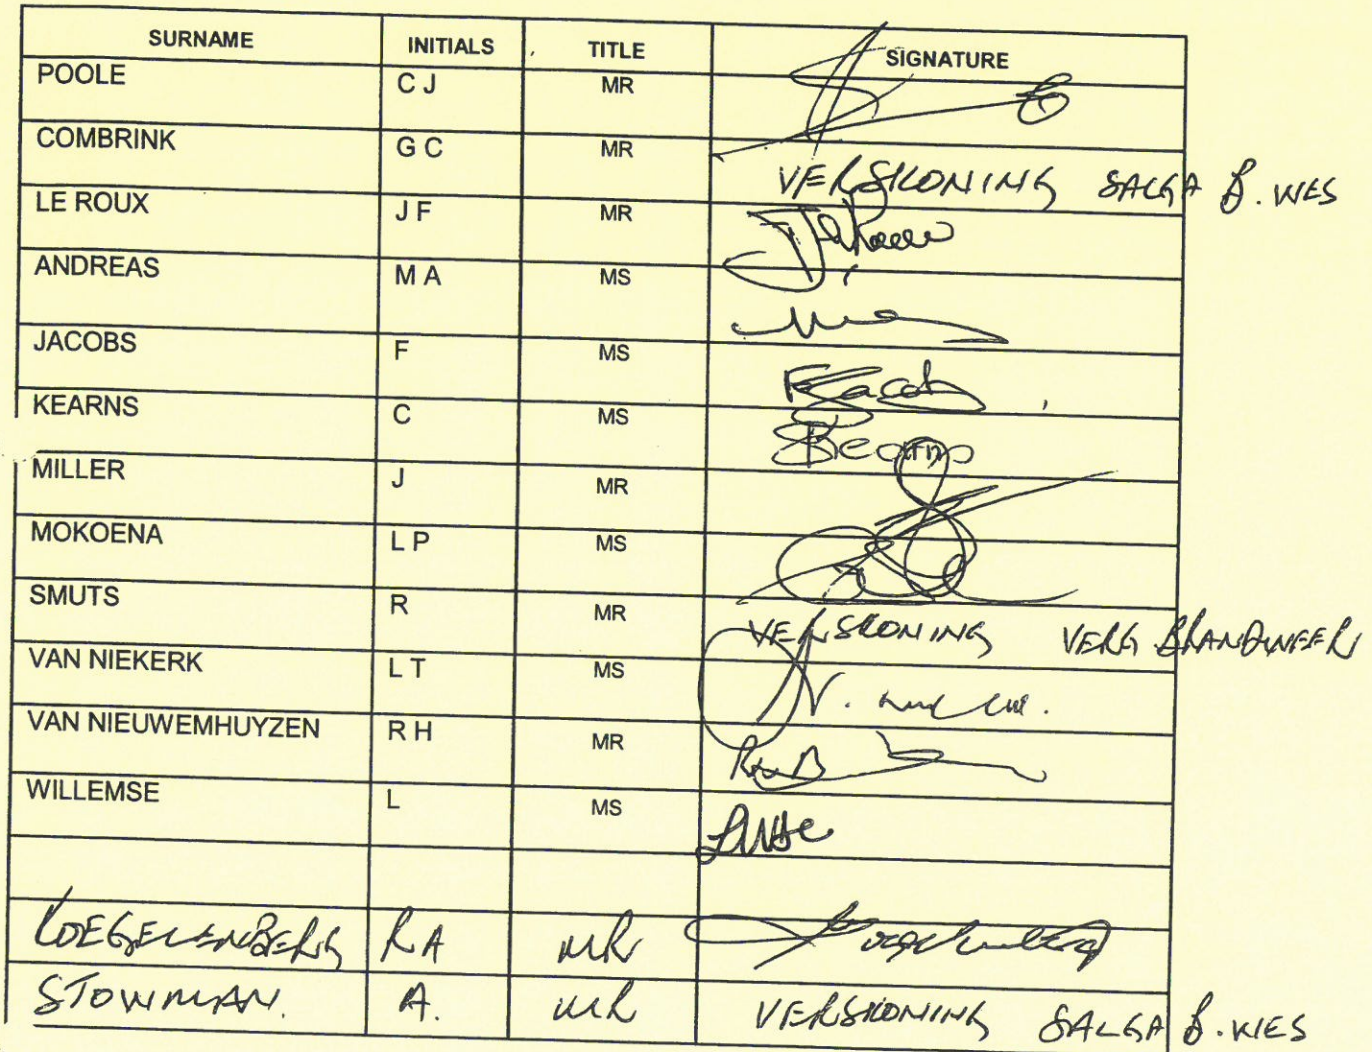 SURNAME INITIALS TITLE SIGNATURE
POOLE C J MR
COMBRINK G C MR VERSKONING SALGA B. WES
LE ROUX J F MR
ANDREAS M A MS
JACOBS F MS FJacobs
KEARNS C MS
MILLER J MR
MOKOENA L P MS
SMUTS R MR VERSKONING VERG BRANDWEER
VAN NIEKERK L T MS
VAN NIEUWEMHUYZEN R H MR
WILLEMSE L MS
KOEGELENBERG R A MR
STOWMAN. A. MR VERSKONING SALGA B. WES